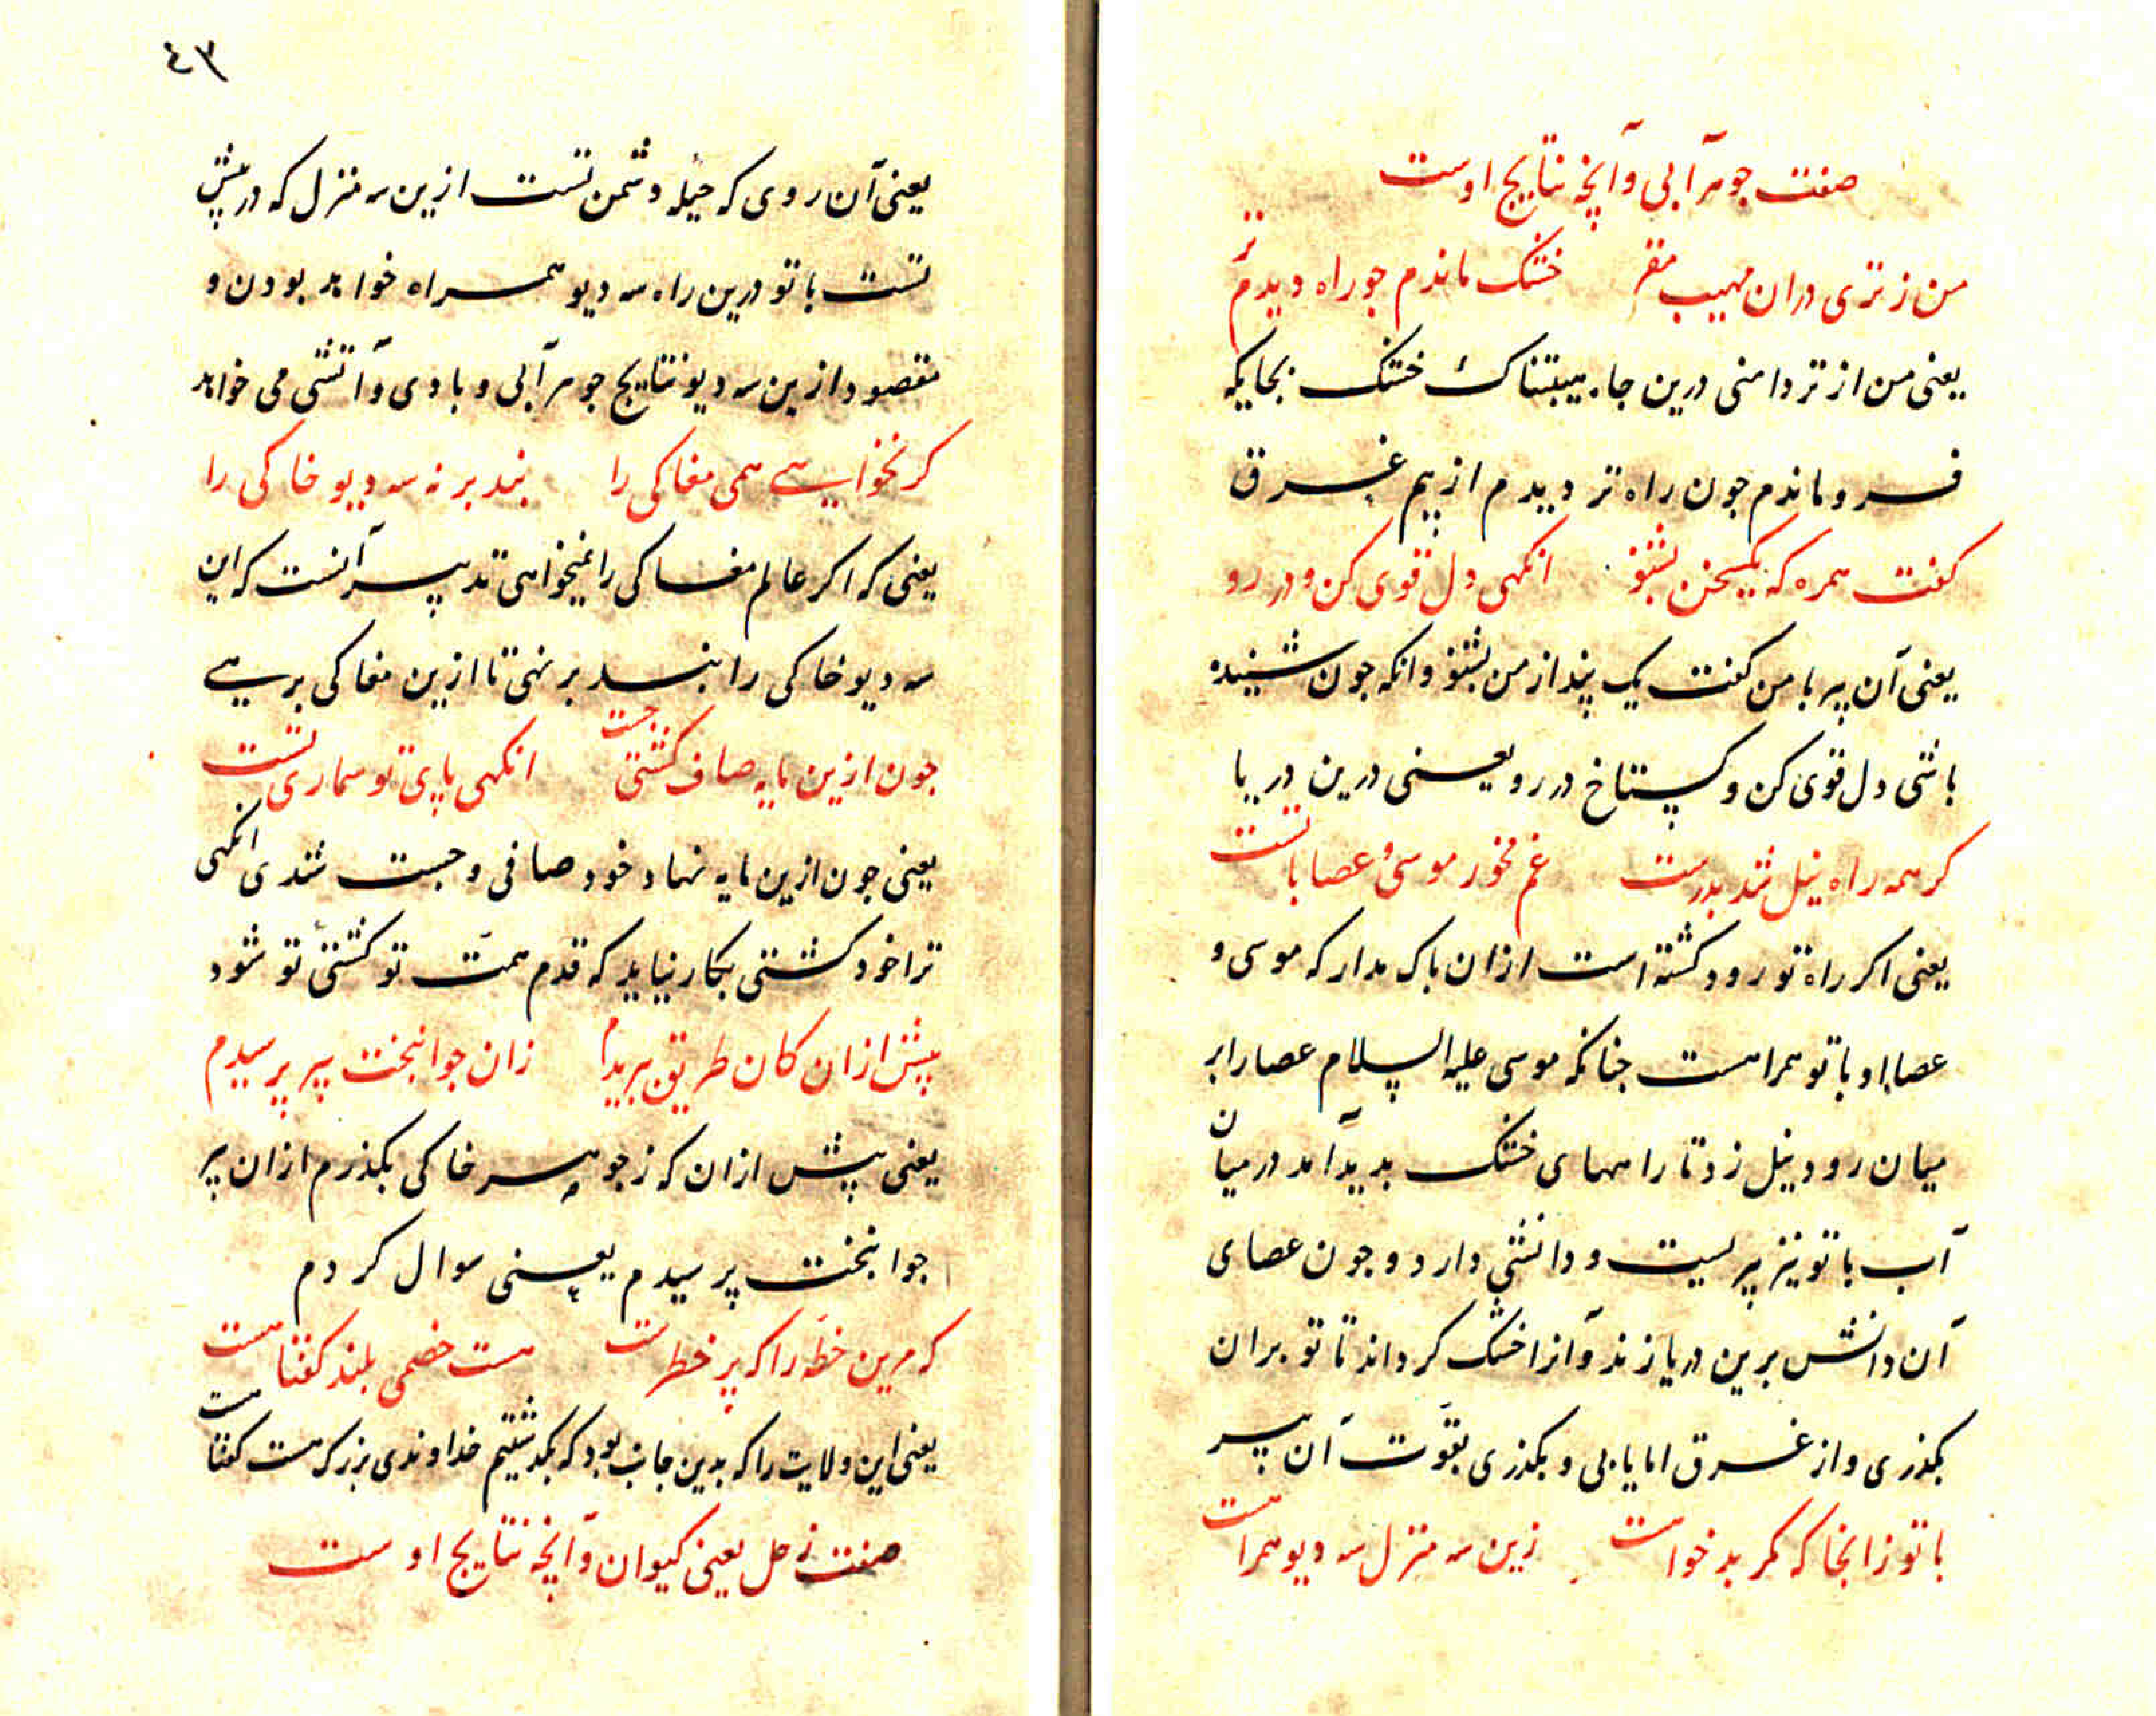 صفت جوهر آبی و آنچه نتایج اوست
من ز تری دران مهیب مقر خشک ماندم جو راه دیدم تر
یعنی من از تردامنی درین جاه هیبتناک خشک بجایکه
فرو ماندم جون راه تر دیدم از بیم غرق
کفت همره که یکسخن بشنو انکهی دل قوی کن و در رو
یعنی آن پیر با من کفت یک پند از من بشنو وانکه جون شنیده
باشی دل قوی کن و کستاخ در رو یعنی درین دریا
کر همه راه نیل شد بدرست غم مخور موسی و عصا با تست
یعنی اکر راه تو رود کشته است ازان باک مدار که موسی و
عصاء او با تو همراهست جنانکه موسی علیه السلام عصا را بر
میان رود نیل زد تا راههای خشک بدید آمد در میان
آب با تو نیز پریست و دانشی دارد و جون عصای
آن دانش برین دریا زند و آنرا خشک کرداند تا تو بران
بکذری و از غرق امان یابی و بکذری بقوت آن پیر
با تو زانجا که مکر بدخواهست زین سه منزل سه دیو همراهست
٤٣
یعنی آن روی که حیلهٔ دشمن تست ازین سه منزل که در پیش
تست با تو درین راه سه دیو همراه خواهد بودن و
مقصود ازین سه دیو نتایج جوهر آبی و بادی و آتشی می خواهد
کر نخواهی همی مغاکی را بند بر نه سه دیو خاکی را
یعنی که اکر عالم مغاکی را نمیخواهی تدبیر آنست که این
سه دیو خاکی را بند بر نهی تا ازین مغاکی برهی
جون ازین مایه صاف کشتی جست انکهی پای تو سماری تست
یعنی جون ازین مایه نهاد خود صافی و جست شدی انکهی
ترا خود کشتی بکار نیاید که قدم همت تو کشتی تو شود
پیش ازان کان طریق ببریدم زان جوانبخت پیر پرسیدم
یعنی پیش ازان که ز جوهر خاکی بکذرم ازان پیر
جوانبخت پرسیدم یعنی سوال کردم
که مرین خطه را که پر خطرست هست خصمی بلند کفتا هست
یعنی این ولایت را که بدین جانب بود که بکذشتیم خداوندی بزرک هست کفتا هست
صفت زحل یعنی کیوان و آنچه نتایج اوست